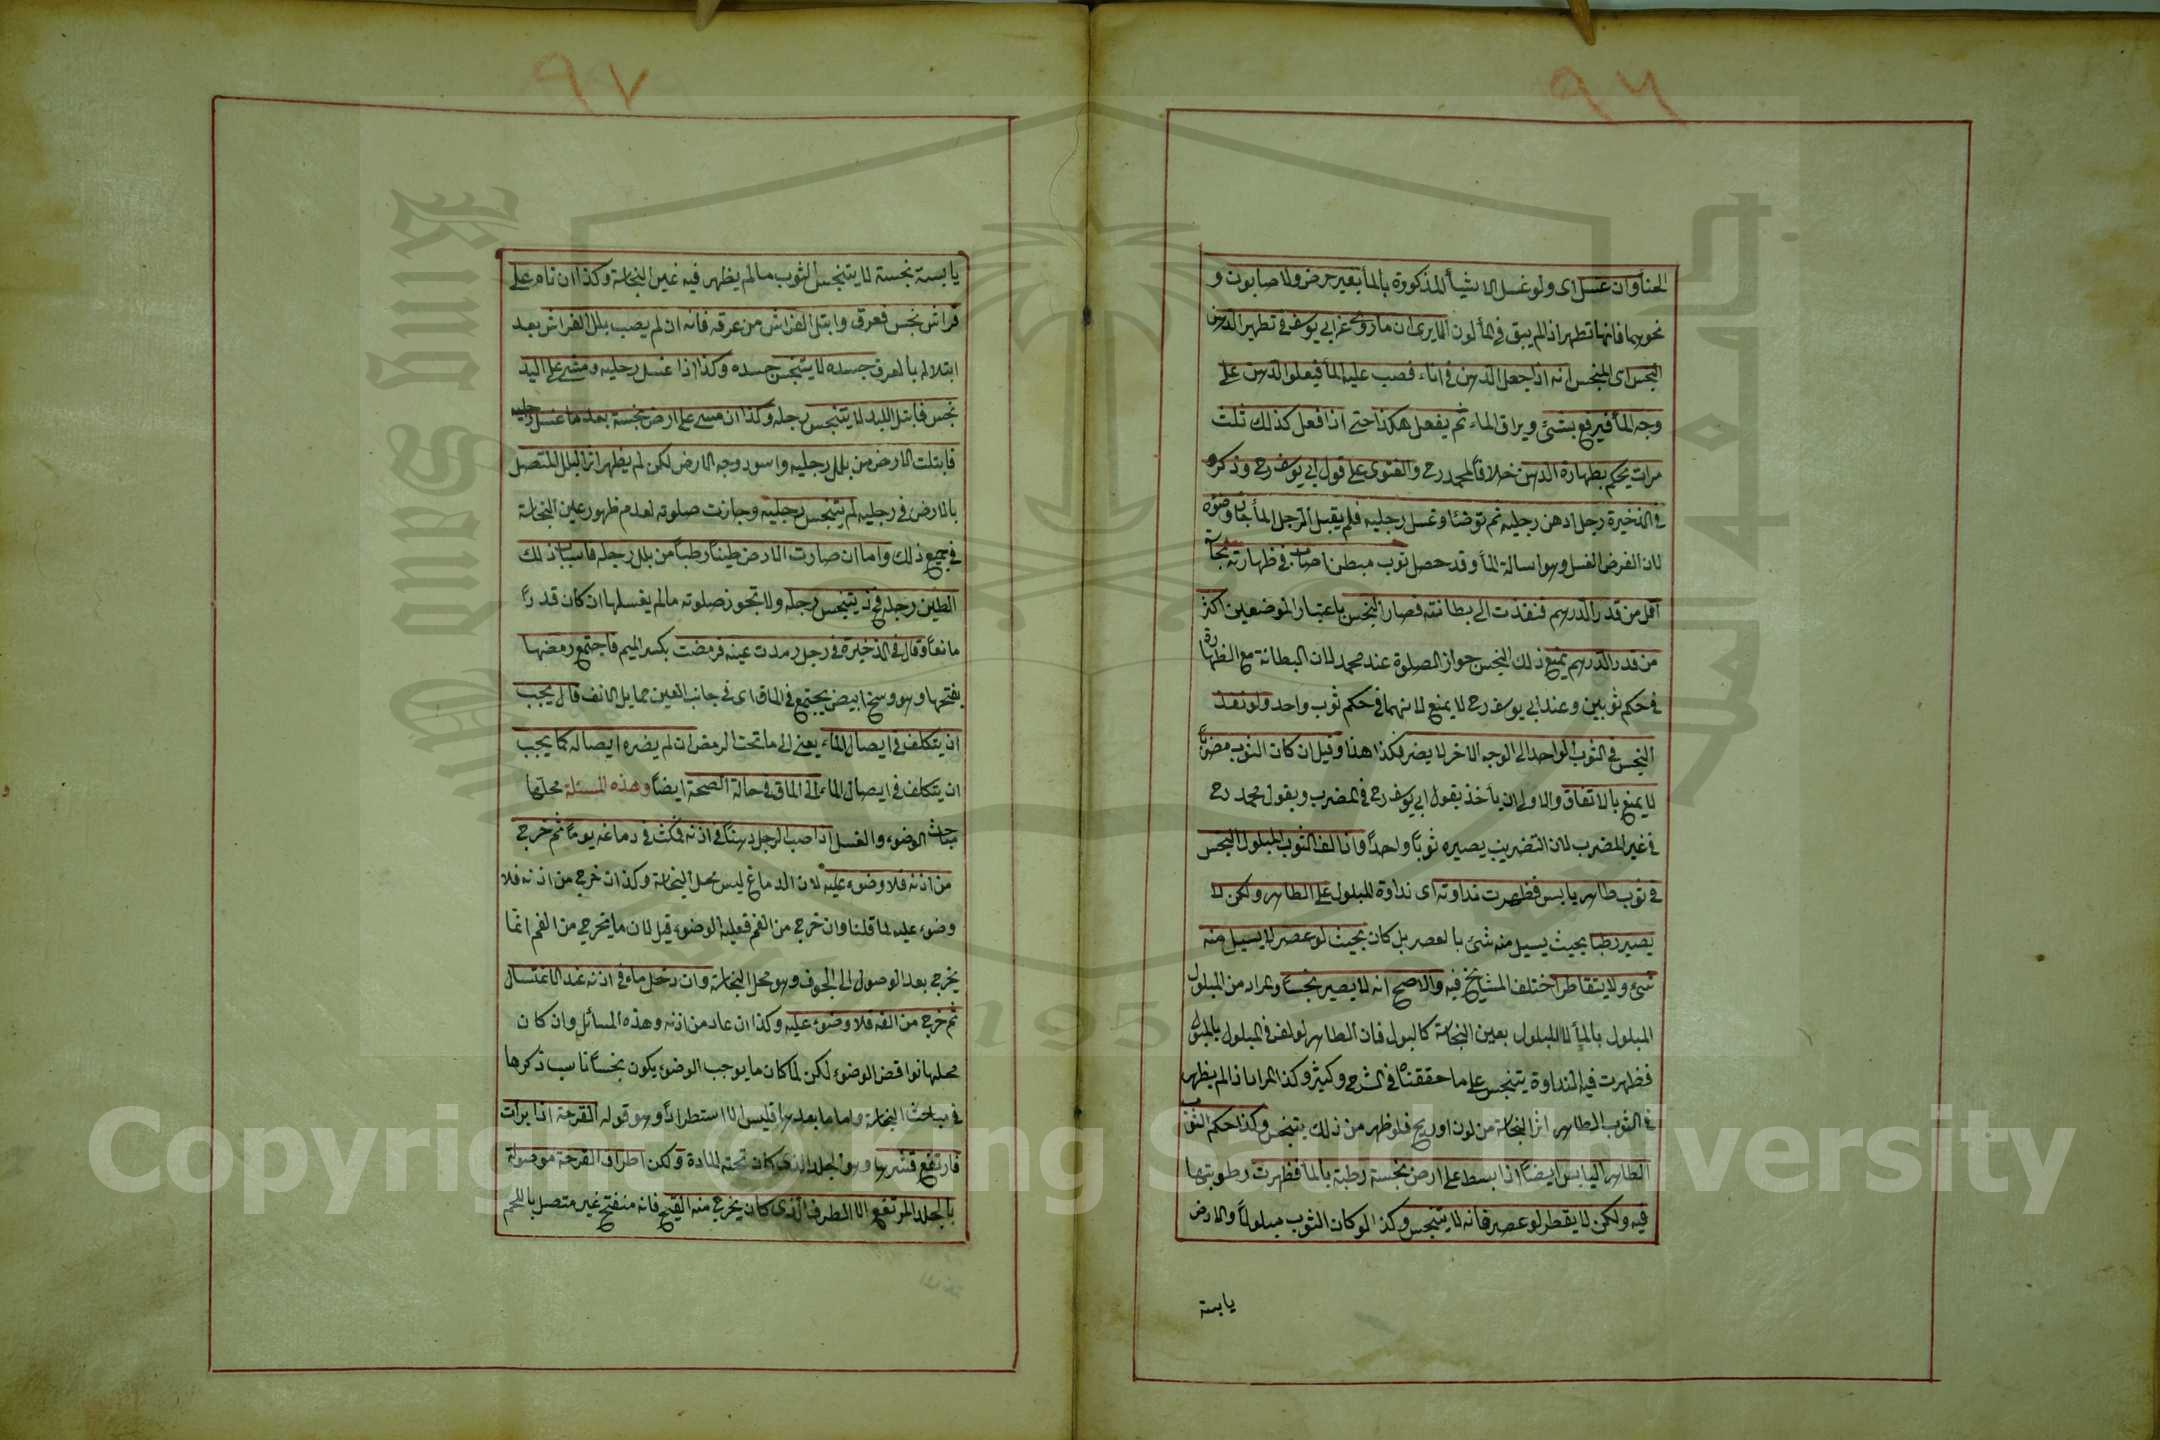 ٩٦
الحنأ وان غسل اى ولو غسل الاشيأ المذكورة بالمأ بغير حرض ولا صابون و
نحوهما فانها تطهر اذا لم يبق في المأ لون الا يرى ان ما روى عن ابي يوسف في تطهير الدهن
النجس اى المتنجس انه اذا جعل الدهن في اناء فصب عليه المأ فيعلو الدهن على
وجه المأ فيرفع بشئ ويراق الماء ثم يفعل هكذا حتى اذا فعل كذلك ثلث
مرات يحكم بطهارة الدهن خلافا لمحمد رح والفتوى على قول ابي يوسف رح وذكر
في الذخيرة رجل ادهن رجليه ثم توضأ وغسل رجليه فلم يقبل الرجل المأ جاز وضوءه
لان الفرض الغسل وهو اسالة المأ وقد حصل ثوب مبطن اصاب في ظهارته نجاسة
اقل من قدر الدرهم فنفذت الى بطانته فصار النجس باعتبار الموضعين اكثر
من قدر الدرهم يمنع ذلك النجس جواز الصلوة عند محمد لان البطانة مع الظهارة
في حكم ثوبين وعند ابي يوسف رح لا يمنع لانهما في حكم ثوب واحد ولو نفذ
النجس في الثوب الواحد الى الوجه الاخر لا يضر فكذا هذا وقيل ان كان الثوب مضربا
لا يمنع بالاتفاق والاولى ان يأخذ بقول ابي يوسف رح في المضرب وبقول محمد رح
في غير المضرب لان التضريب يصيره ثوبا واحدا واذا لف الثوب المبلول النجس
في ثوب طاهر يابس فظهرت نداوته اى نداوة المبلول على الطاهر ولكن لا
يصير رطبا بحيث يسيل منه شئ بالعصر بل كان بحيث لو عصر لا يسيل منه
شئ ولا يتقاطر اختلف المشايخ فيه والاصح انه لا يصير نجسا والمراد من المبلول
المبلول بالمأ لا المبلول بعين النجاسة كالبول فان الطاهر لو لف في المبلول بالبول
فظهرت فيه النداوة يتنجس على ما حققناه في الشرح وكيثر وكذا المراد اذا لم يظهر
في الثوب الطاهر اثر النجاسة من لون او ريح فلو ظهر من ذلك يتنجس وكذا حكم الثوب
الطاهر اليابس ايضا اذا بسط على ارض نجسة رطبة بالمأ فظهرت رطوبتها
فيه ولكن لا يقطر لو عصر فانه لا يتنجس وكذا لو كان الثوب مبلولا والارض
يابسة
٩٧
يابسة نجسة لا يتنجس الثوب ما لم يظهر فيه عين النجاسة وكذا ان نام على
فراش نجس فعرق وابتل الفراش من عرقه فانه ان لم يصب بلل الفراش بعد
ابتلاله بالعرق جسده لا يتنجس جسده وكذا اذا غسل رجليه ومشى على اللبد
نجس فابتل اللبد لا يتنجس رجله وكذا ان مشى على ارض نجسة بعد ما غسل رجليه
فابتلت الارض من بلل رجليه واسود وجه الارض لكن لم يظهر اثر البلل المتصل
بالارض في رجليه لم يتنجس رجليه وجازت صلوته لعدم ظهور عين النجاسة
في جميع ذلك واما ان صارت الارض طينا رطبا من بلل رجله فاصاب ذلك
الطين رجله فح يتنجس رجله ولا تجوز صلوته ما لم يغسلها ان كان قدرا
مانعا وقال في الذخيرة في رجل رمدت عينه فرمضت بكسر الميم فاجتمع رمضها
بفتحها وهو وسخ ابيض يجتمع في الماق اى في جانب العين مما يلي الانف قال يجب
ان يتكلف في ايصال الماء يعني الى ما تحت الرمض ان لم يضره ايصاله كما يجب
ان يتكلف في ايصال الماء الى الماق في حالة الصحة ايضا وهذه المسئلة محلها
مباحث الوضوء والغسل اذا صب الرجل دهنا في اذنه فمكث في دماغه يوما ثم خرج
من اذنه فلا وضوء عليه لان الدماغ ليس محل النجاسة وكذا ان خرج من انفه فلا
وضوء عليه لما قلنا وان خرج من الفم فعليه الوضوء قيل لان ما يخرج من الفم انما
يخرج بعد الوصول الى الجوف وهو محل النجاسة وان دخل ماء في اذنه عند الاغتسال
ثم خرج من انفه فلا وضوء عليه وكذا ان عاد من اذنه وهذه المسائل وان كان
محلها نواقض الوضوء لكن لما كان ما يوجب الوضوء يكون نجسا ناسب ذكرها
في مباحث النجاسة واما ما بعدها فليس الا استطرادا وهو قوله القرحة اذا برأت
فارتفع قشرها وهو الجلد الذى كان تحته المادة ولكن اطراف القرحة موصولة
بالجلد المرتفع الا الطرف الذى كان يخرج منه القيح فانه منفتح غير متصل باللحم
Copyright © King Saud University
King Saud University
1957